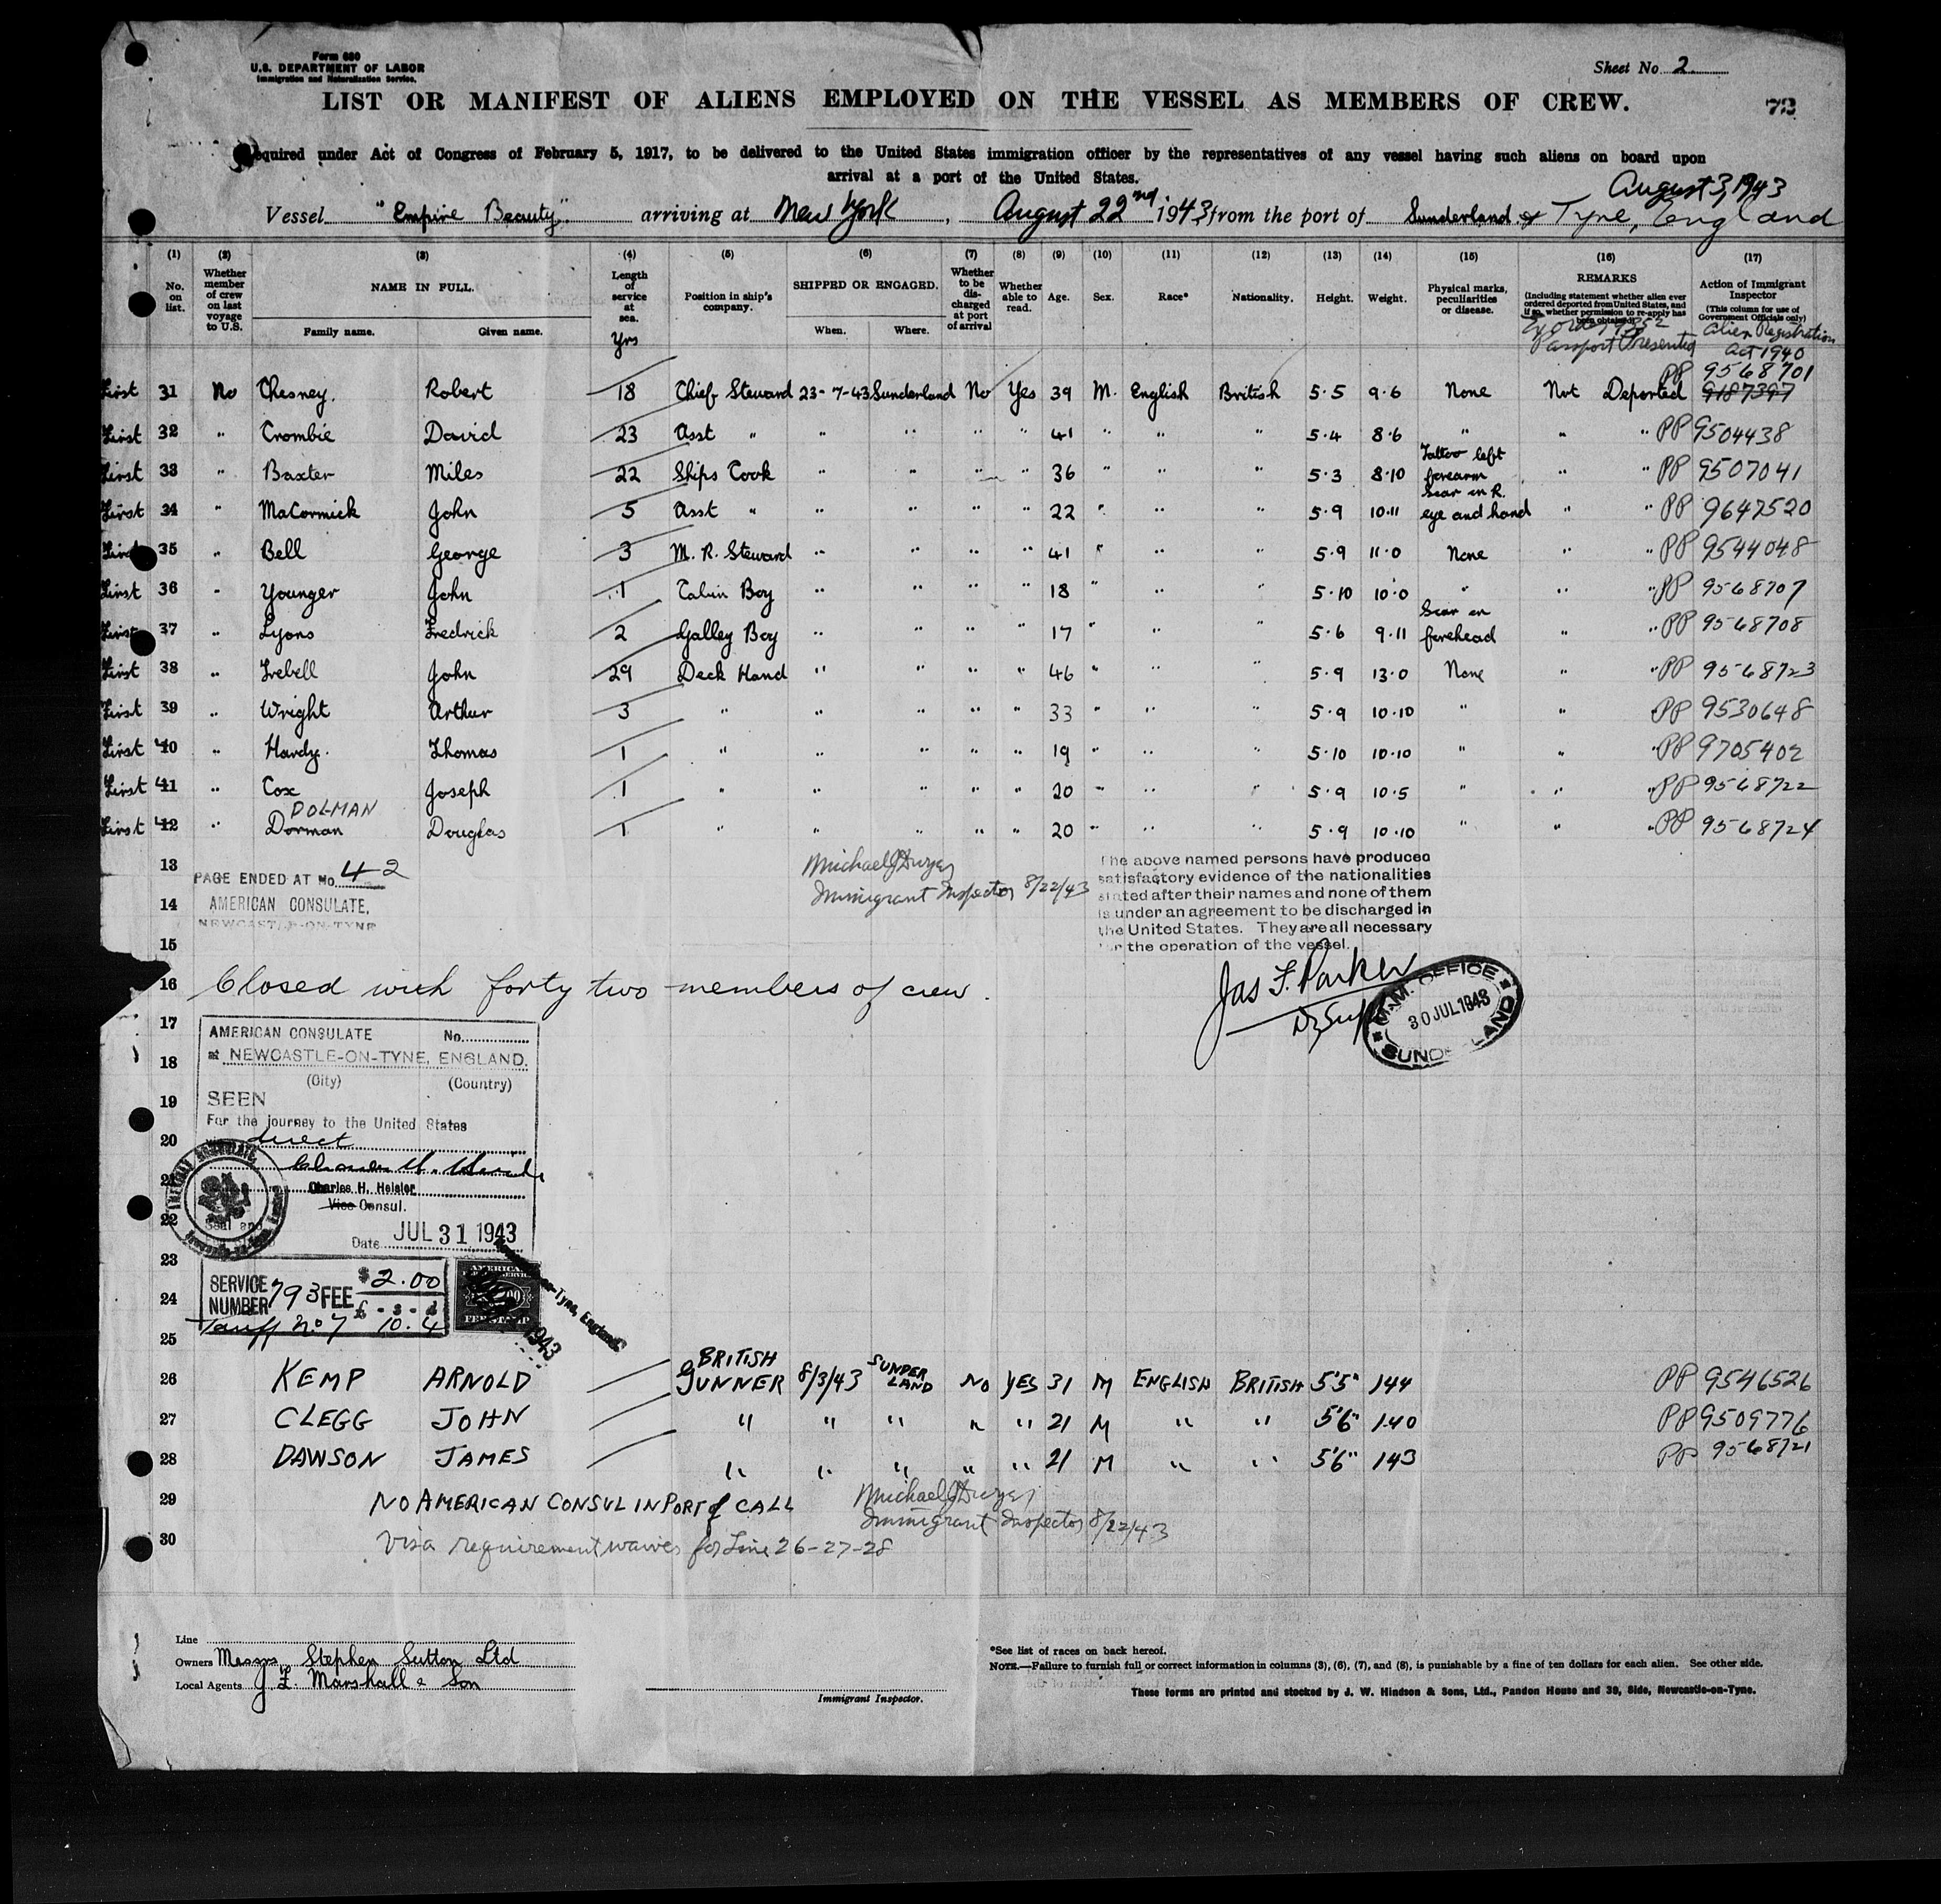 Form 680
U.S. DEPARTMENT OF LABOR
Immigration and Naturalization Service.
Sheet No. 2
LIST OR MANIFEST OF ALIENS EMPLOYED ON THE VESSEL AS MEMBERS OF CREW.
72
Required under Act of Congress of February 5, 1917, to be delivered to the United States immigration officer by the representatives of any vessel having such aliens on board upon
arrival at a port of the United States.
August 3, 1943
Vessel "Empire Beauty" arriving at New York, August 22nd, 1943, from the port of Sunderland & Tyne, England
(1) (2) (3) (4) (5) (6) (7) (8) (9) (10) (11) (12) (13) (14) (15) (16) (17)
No. on list. Whether member of crew on last voyage to U.S. NAME IN FULL. Family name. Given name. Length of service at sea. Yrs Position in ship's company. SHIPPED OR ENGAGED. When. Where. Whether to be discharged at port of arrival Whether able to read. Age. Sex. Race* Nationality. Height. Weight. Physical marks, peculiarities or disease. REMARKS (Including statement whether alien ever ordered deported from United States, and if so, whether permission to re-apply has been obtained) Action of Immigrant Inspector (This column for use of Government Officials only)
Passport Presented Alien Registration Act 1940
PP 9568701
First 31 No Chesney. Robert 18 Chief Steward 23-7-43 Sunderland No Yes 39 M. English British 5·5 9·6 None Not Deported 9187397
First 32 " Crombie David 23 Asst " " " " " 41 " " " 5·4 8·6 " " " PP 9504438
First 33 " Baxter Miles 22 Ships Cook " " " " 36 " " " 5·3 8·10 Tattoo left forearm " " PP 9507041
First 34 " MaCormick John 5 Asst " " " " " 22 " " " 5·9 10·11 Scar in R. eye and hand " " PP 9647520
First 35 " Bell George 3 M. R. Steward " " " " 41 " " " 5·9 11·0 None " " PP 9544048
First 36 " Younger John 1 Cabin Boy " " " " 18 " " " 5·10 10·0 " " " PP 9568707
First 37 " Lyons Fredrick 2 Galley Boy " " " " 17 " " " 5·6 9·11 Scar on forehead " " PP 9568708
First 38 " Trebell John 29 Deck Hand " " " " 46 " " " 5·9 13·0 None " " PP 9568723
First 39 " Wright Arthur 3 " " " " " 33 " " " 5·9 10·10 " " " PP 9530648
First 40 " Hardy. Thomas 1 " " " " " 19 " " " 5·10 10·10 " " " PP 9705402
First 41 " Cox Joseph 1 " " " " " 20 " " " 5·9 10·5 " " " PP 9568722
DOLMAN
First 42 " Dorman Douglas 1 " " " " " 20 " " " 5·9 10·10 " " " PP 9568724
13
PAGE ENDED AT No. 42
AMERICAN CONSULATE,
NEWCASTLE-ON-TYNE
Michael J Dwyer
Immigrant Inspector 8/22/43
The above named persons have produced
satisfactory evidence of the nationalities
stated after their names and none of them
is under an agreement to be discharged in
the United States. They are all necessary
for the operation of the vessel.
14
15
16 Closed with forty two members of crew.
Jas F. Parker
M.M. OFFICE
30 JUL 1943
SUNDERLAND
17
AMERICAN CONSULATE No.
at NEWCASTLE-ON-TYNE, ENGLAND.
18
(City) (Country)
19 SEEN
For the journey to the United States
20 direct
21
Charles H. Heisler
Vice Consul.
22
Date JUL 31 1943
23
SERVICE NUMBER 793 FEE $2.00
£ - s - d
Tariff No 7 10. 4
AMERICAN
FEE STAMP
Tyne, England
1943
24
25
26 KEMP ARNOLD BRITISH GUNNER 8/3/43 SUNDERLAND NO YES 31 M ENGLISH BRITISH 5'5" 144 PP 9546526
27 CLEGG JOHN " " " " " 21 M " " 5'6" 140 PP 9509776
28 DAWSON JAMES " " " " " 21 M " " 5'6" 143 PP 9568721
29 NO AMERICAN CONSUL IN PORT of CALL
Michael J Dwyer
Immigrant Inspector 8/22/43
30 Visa requirement waived for Line 26-27-28
Line
Owners Messrs Stephen Sutton Ltd
Local Agents J. F. Marshall & Son
Immigrant Inspector.
*See list of races on back hereof.
NOTE.—Failure to furnish full or correct information in columns (3), (6), (7), and (8), is punishable by a fine of ten dollars for each alien. See other side.
These forms are printed and stocked by J. W. Hindson & Sons, Ltd., Pandon House and 39, Side, Newcastle-on-Tyne.